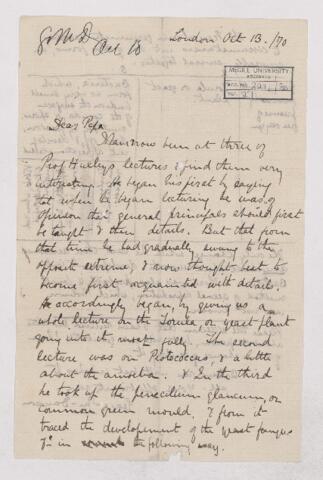 G.M.D.
Oct 13
London Oct 13. /70
McGILL UNIVERSITY
ARCHIVES
ACC. NO.
REF.
Dear Papa
I have now been at three of
Prof Huxley's lectures & find them very
interesting. He began his first by saying
that when he began lecturing he was of
opinion that general principals should first
be taught & then details. But that from
that time he had gradually swung to the
opposite extreme, & now thought best to
become first acquainted with details.
He accordingly began, by giving us a
whole lecture on the Torula or yeast plant
going into it, most fully. The second
lecture was on Protococcus, & a little
about the amoeba. & In the third
he took up the penecilium glaucum, or
common green mould, & from it
traced the development of the yeast fungus
in the following way.